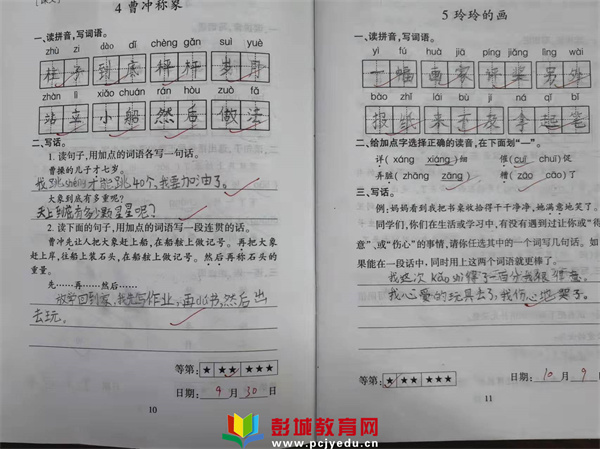 4 曹冲称象
一、读拼音,写词语。
zhù zi dào dǐ chèng gǎn suì yuè
柱子 到底 秤杆
zhàn lì xiǎo chuán rán hòu zuò fǎ
站立 小船 然后 做法
二、写话。
1. 读句子,用加点的词语各写一句话。
曹操的儿子才七岁。
我跳shéng才能跳40个,我要加油了。
大象到底有多重呢?
天上到底有多少颗星星呢?
2. 读下面的句子,用加点的词语写一段连贯的话。
曹冲先让人把大象赶上船,在船舷上做记号。再把大象
赶上岸,往船上装石头,在船舷做记号。然后再称石头的
重量。
先……再……然后……
放学回到家,我先写作业,再看书,然后出
去玩。
等第: ★ ★★ ★★★
日期: 9 月 30 日
10
5 玲玲的画
一、读拼音,写词语。
yì fú huà jiā píng jiǎng lìng wài
一幅 画家 评奖 另外
bào zhǐ lái bu jí ná qǐ bǐ
报纸 来 拿起笔
二、给加点字选择正确的读音,在下面划“—”。
详( xáng xiáng )细 催( cuī chuī )促
弄脏( zhāng zāng ) 糟( zāo cáo )糕
三、写话。
例:妈妈看到我把书桌收拾得干干净净,她满意地笑了。
同学们,你们在生活或学习中,有没有遇到过让你或“得
意”、或“伤心”的事情,请你任选其中的一个词写几句话。如
果能在一段话中,同时用上这两个词语就更棒了。
我这次kǎo 了一百分我很得意。
我心爱的玩具丢了,我伤心地哭了。
等第: ★ ★★ ★★★
日期: 10 月 9 日
11
彭城教育网
www.pcjyedu.cn